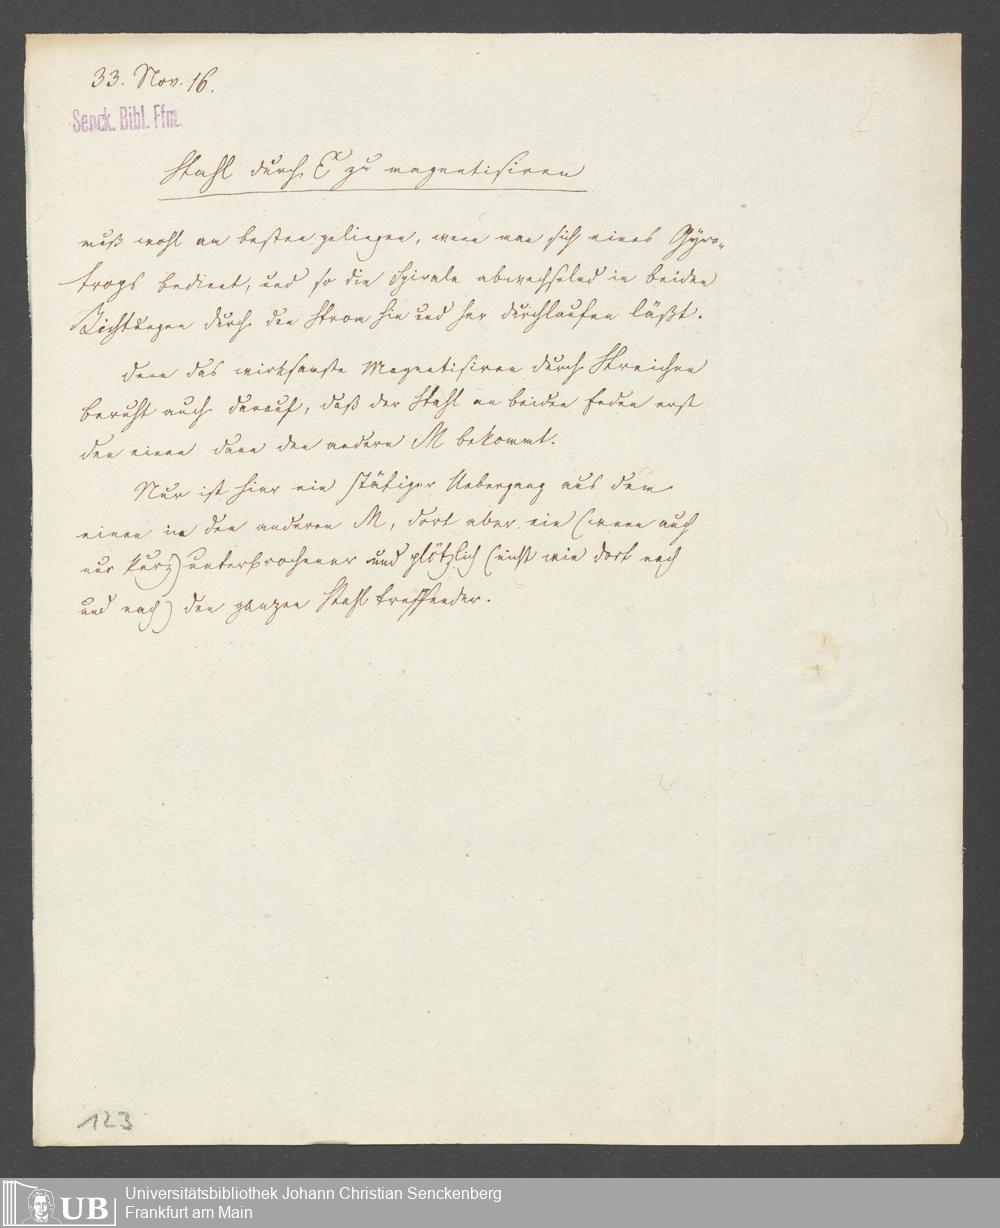 33. Nov. 16.
Senck. Bibl. Ffm.
Stahl durch E zu magnetisiren
muß wohl am besten gelingen, wenn man sich eines Gyro-
trops bedient, und so die Spirale abwechselnd in beiden
Richtungen durch den Strom hin und her durchlaufen läßt.
Denn das wirksamste Magnetisiren durch Streichen
beruht auch darauf, daß der Stahl an beiden Enden erst
den einen dann den andern M bekommt.
Nur ist hier ein stätiger Uebergang aus dem
einen in den anderen M, dort aber ein (wenn auch
nur kurz) unterbrochener und plötzlich (nicht wie dort nach
und nach) den ganzen Stahl treffender.
123
UB
Universitätsbibliothek Johann Christian Senckenberg
Frankfurt am Main